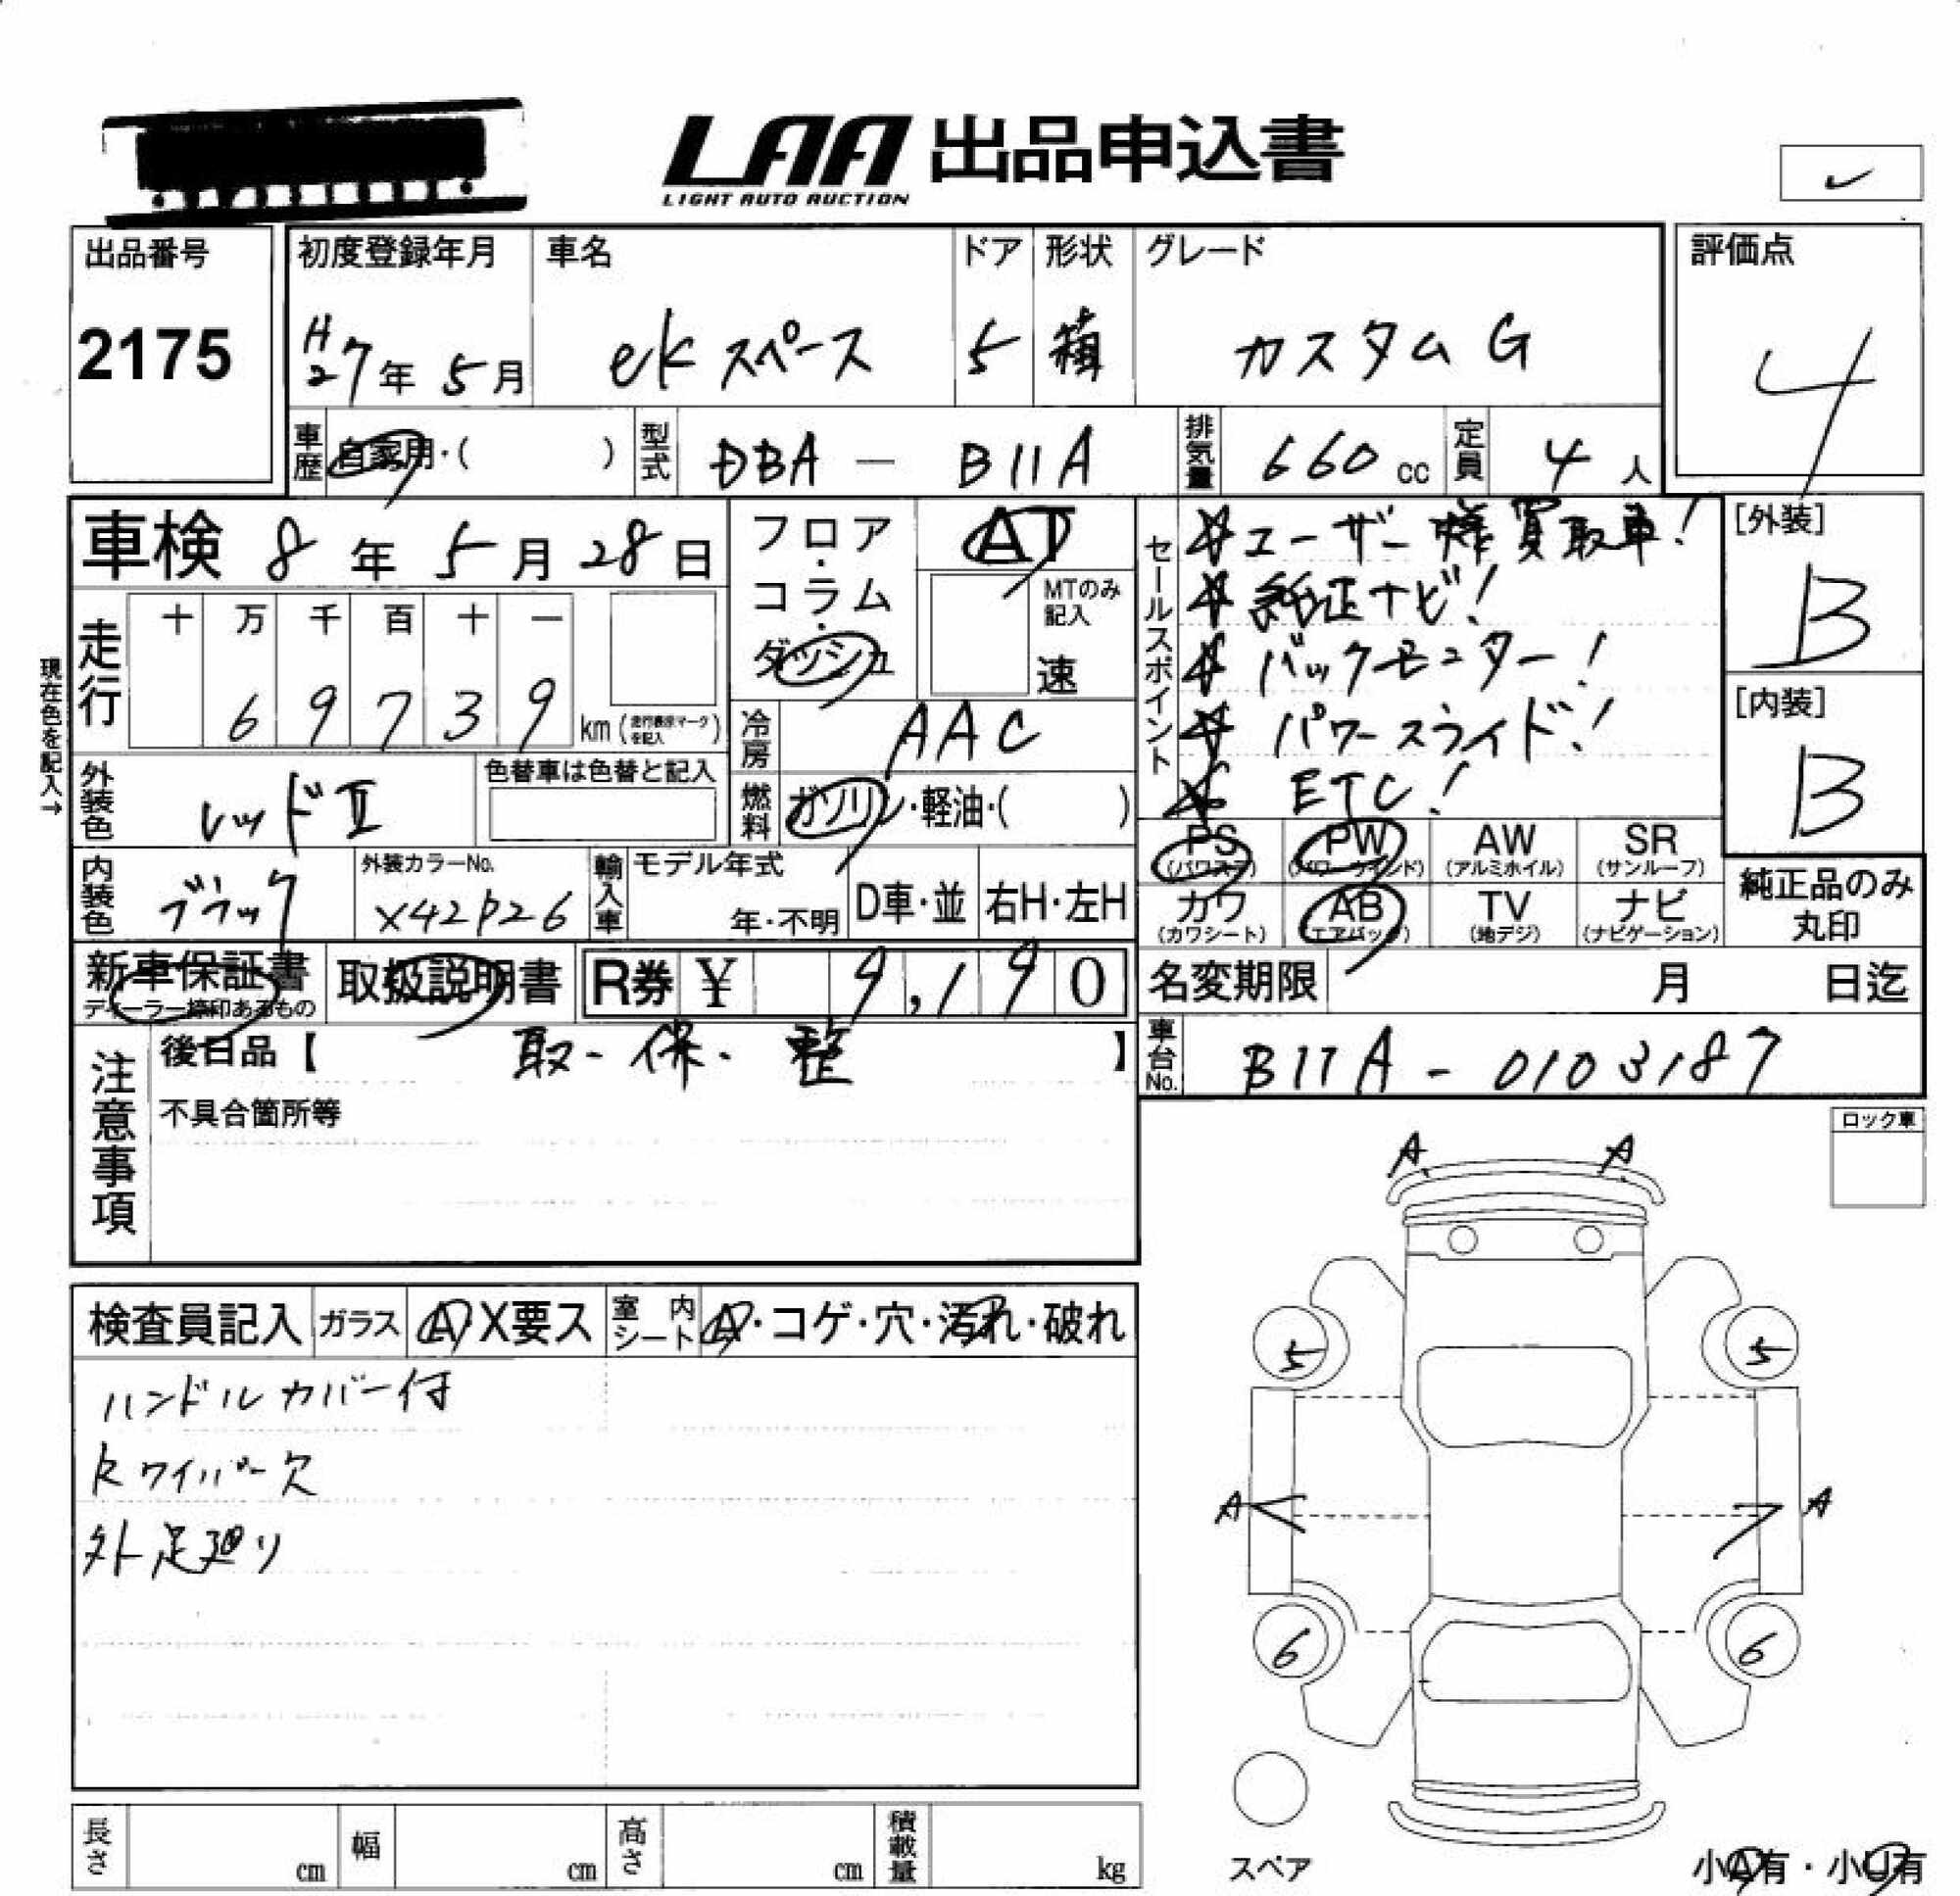 LAA 出品申込書
LIGHT AUTO AUCTION
出品番号
2175
初度登録年月
H27年 5月
車名
ekスペース
ドア
5
形状
箱
グレード
カスタム G
評価点
4
車歴 自家用・( )
型式 DBA - B11A
排気量 660 cc
定員 4 人
車検 8年 5月 28日
現在色を記入→
走行
十 万 千 百 十 一
6 9 7 3 9 km (走行表示マークを記入)
フロア・コラム・ダッシュ
AT
MTのみ記入
速
冷房 AAC
燃料 ガソリン・軽油・( )
セールスポイント
ユーザー様買取車!
純正ナビ!
バックモニター!
パワースライド!
ETC!
[外装]
B
[内装]
B
外装色 レッドII
色替車は色替と記入
内装色 ブラック
外装カラーNo.
X42P26
輸入車
モデル年式
年・不明
D車・並
右H・左H
PS (パワステ)
PW (パワーウインド)
AW (アルミホイル)
SR (サンルーフ)
カワ (カワシート)
AB (エアバッグ)
TV (地デジ)
ナビ (ナビゲーション)
純正品のみ丸印
新車保証書
ディーラー捺印あるもの
取扱説明書
R券 ¥ 9,190
名変期限 月 日迄
車台No. B11A - 0103187
注意事項
後日品【 取・保・整 】
不具合箇所等
ロック車
検査員記入
ガラス A X要ス
室内シート A・コゲ・穴・汚れ・破れ
ハンドルカバー付
Rワイパー欠
外足廻り
A A
5 5
A A
6 6
スペア
小A有・小U有
長さ cm
幅 cm
高さ cm
積載量 kg